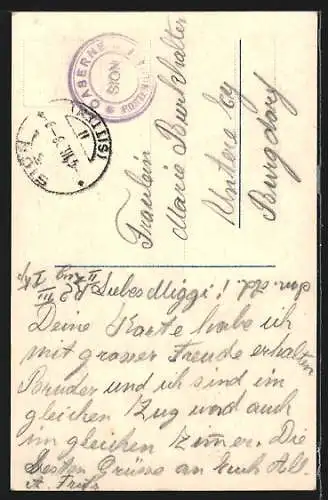 CASERNE SION
SION
SION
(SITTEN)
Fräulein
Marie Burkhalter
Untere Ey
Burgdorf
Liebes Miggi!
Deine Karte habe ich
mit grosser Freude erhalten
Bruder und ich sind im
gleichen Zug und auch
im gleichen Zimmer. Die
besten Grüsse an Euch All.
A. Fritz